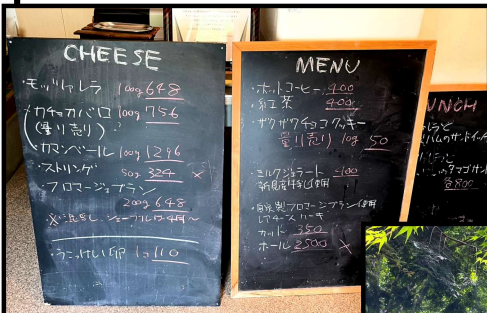 CHEESE
・モッツァレラ 100g 648
・カチョカバロ 100g 756
(量り売り)
・カマンベール 100g 1296
・ストリング 50g 324 ×
・フロマージュブラン
200g 648
・うこっけい卵 1コ 110
MENU
・ホットコーヒー 400
・紅茶 400
・ザクザクチョコクッキー
量り売り 10g 50
・ミルクジェラート 400
使用
・自家製フロマージュブラン使用
レアチーズケーキ
カット 350
ホール 2500 ×
UNCH
ハムのサンドイッチ
タマゴサンド
各800